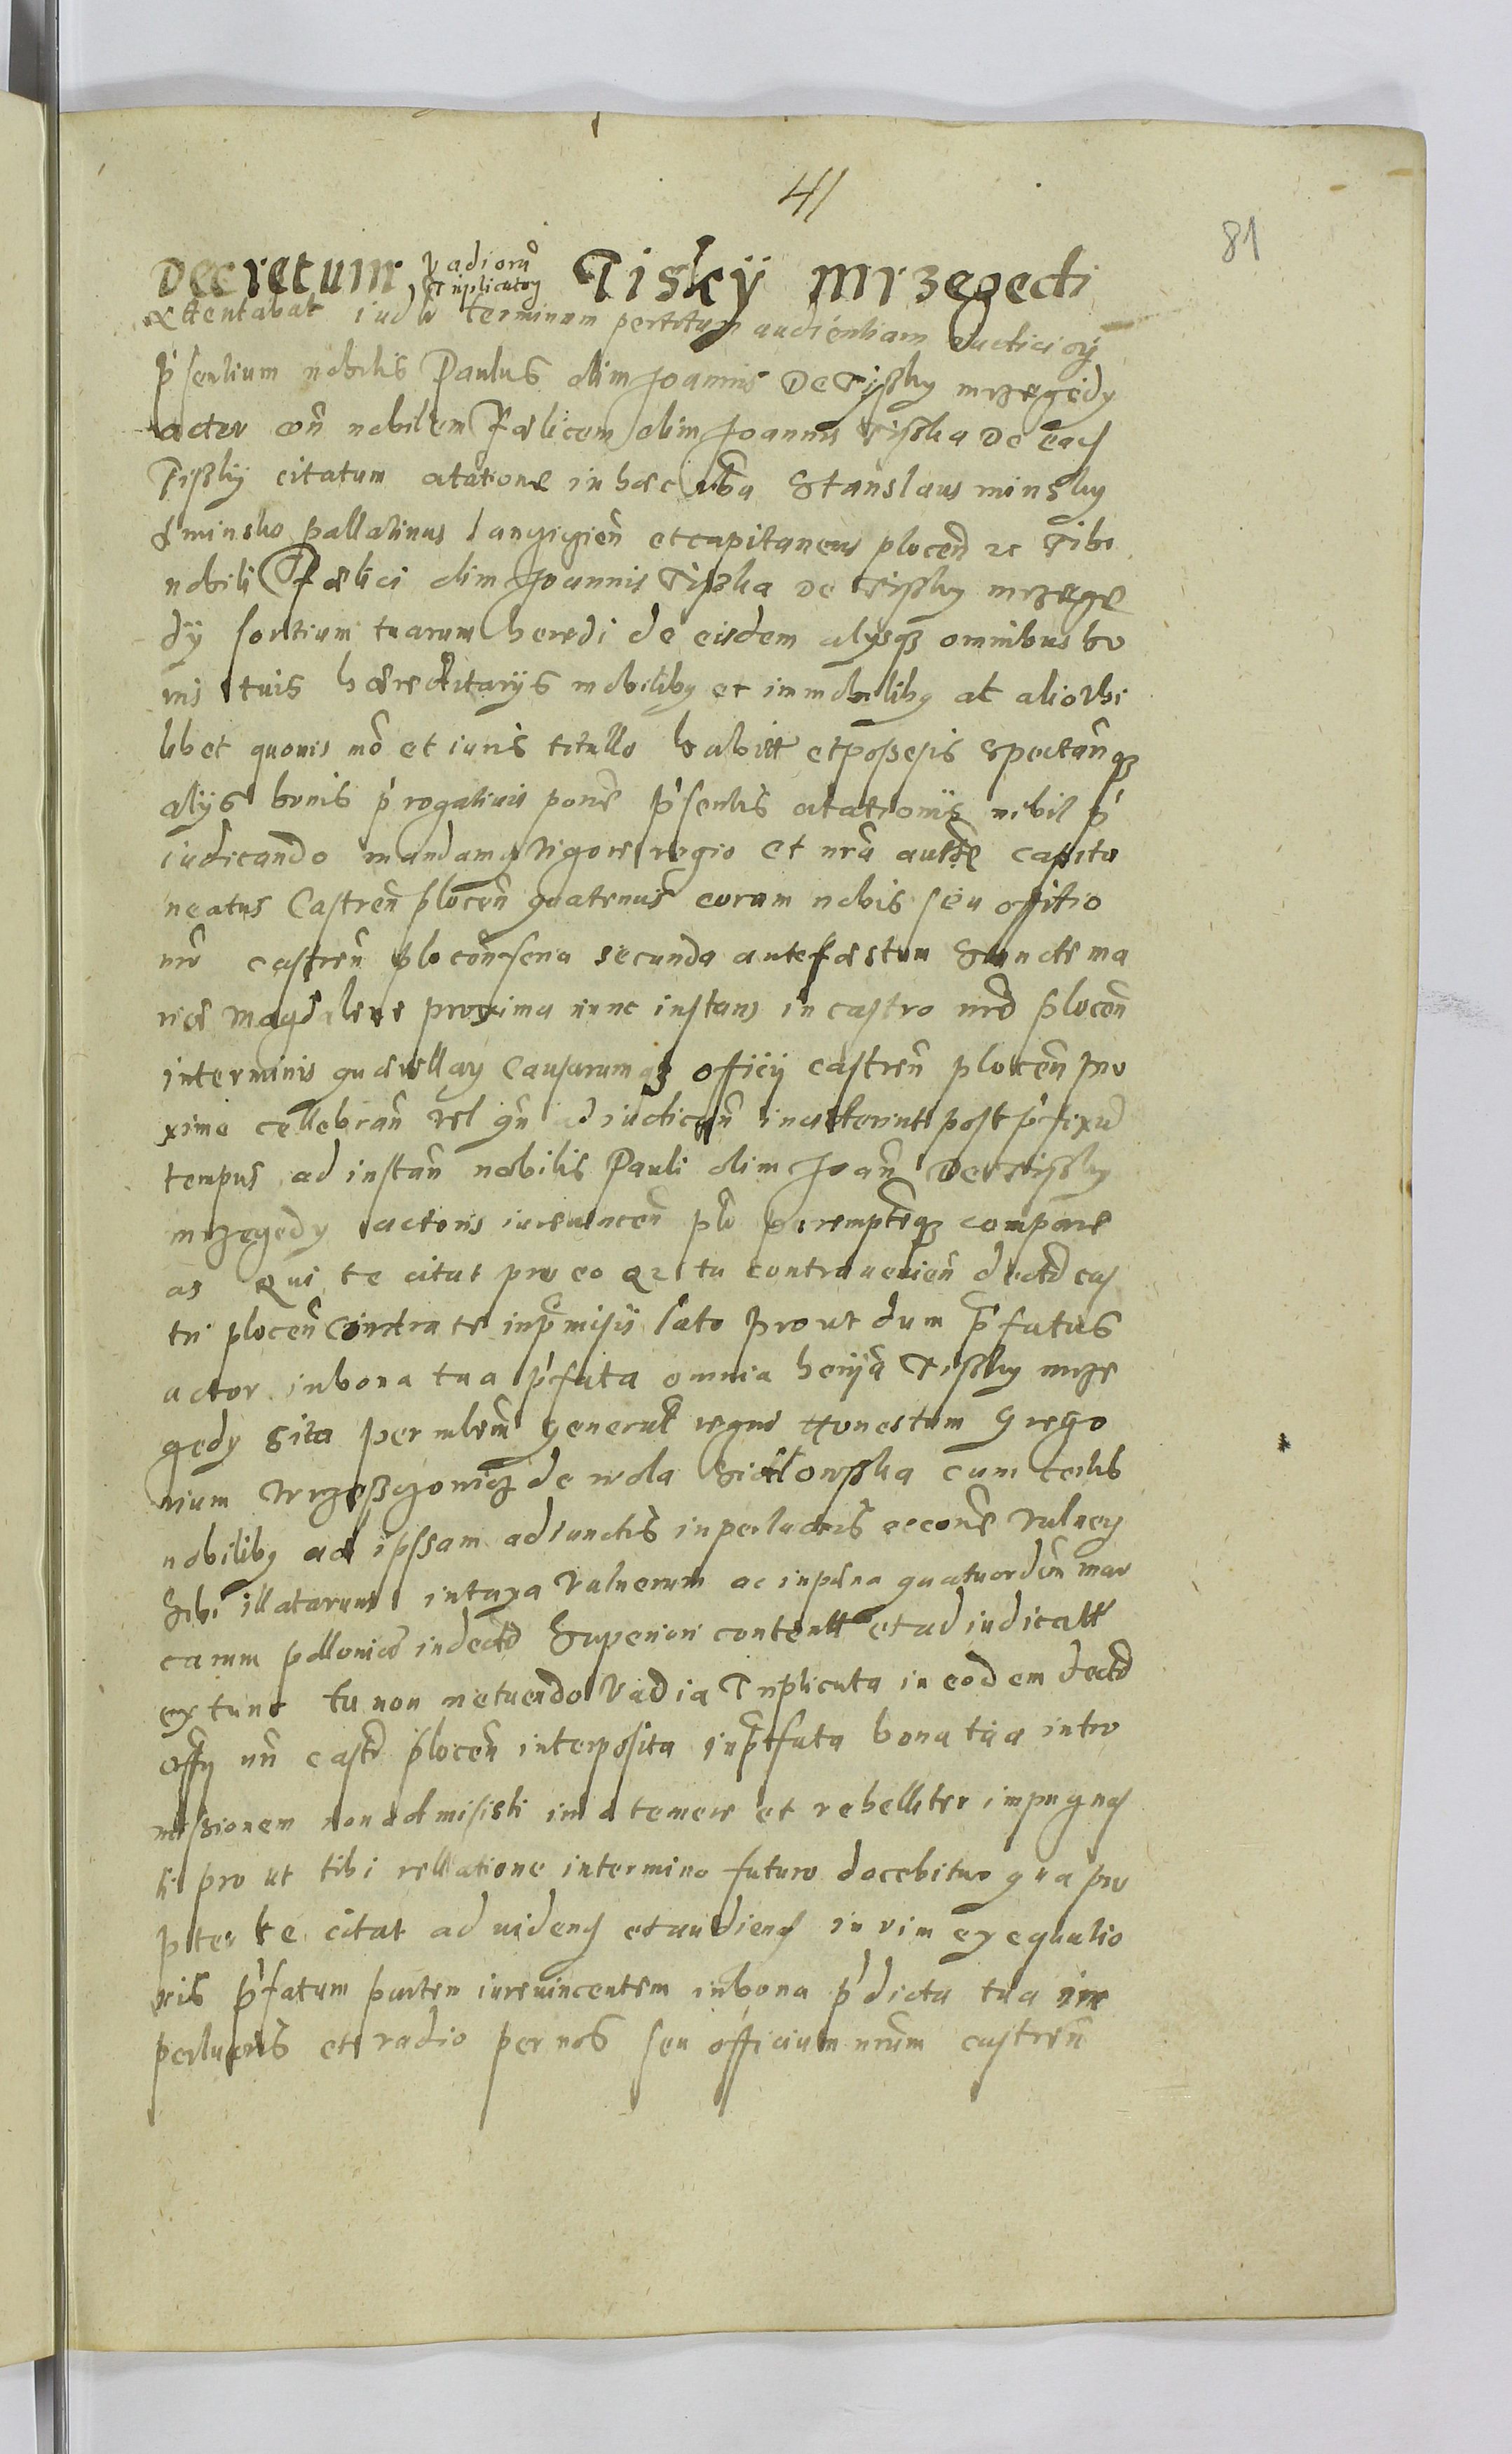 41
81
Decretum vadiorũ triplicatorꝫ Tisky mrzegedi
Attentabat iudicialr terminum peritum audientiam iudiciorꝫ
p̃sentium nobilis Paulus olim Joannis De Tißky mrzegedy
actor con̄ nobilem Fælicem olim Joannis Tißka De eadꝫ
Tißky citatum citatione in hæc vba Stanslaus minsky
de minsko pallatinus langigien̄ et capitaneus plocen̄ ꝛc Tibi
nobili Fælici olim Joannis Tißka De Tißky mrzege
dy sortium tuarum heredi de eisdem alysqꝫ omnibus bo
nis tuis hæreditarys mobilibꝫ et immobilibꝫ at alio vbi
libet quouis mõ et iuris titullo habitt et possesis spectan̄qꝫ
alys bonis p̃rogatiuis porr̃ p̃sentis citationis nihil p̃
iudicando mandamꝫ vigore regio et nrã authte capita
neatus Castren̄ plocen̄ quatenus coram nobis seu offitio
nrõ castren̄ plocen̄ feria secunda ante fæstum Sanctæ ma
riæ magdalene proxima nunc instans in castro nrõ plocen̄
in terminis quærellarꝫ Causarumqꝫ officij castren̄ plocen̄ pro
xime cellebran̄ vel qn̄ ad iudican̄ inciderint post p̃fixũ
tempus ad instan̄ nobilis Pauli olim Joan̄ De Tißky
mrzegedy actoris iureuincen̄ plr̃ peremptieqꝫ compare
as Qui te citat pro eo qꝛ tu contrauenien̄ decto cas
tri plocen̄ Contra te in p̃misis lato prout dum p̃fatus
actor in bona tua p̃fata omnia hecin Tißky mrze
gedy sita per mlem̃ generalẽ regni Honestum Grego
rium Wrzeßczonicz de wola Sidlowska cum certis
nobilibꝫ ad ipssam adiunctis in perlucris rõne vulnerꝫ
Sibi illatarum in taxa vulnerum ac in pæna quatuordẽn mar
carum pollonicæ in decto Superiori contentt et adiudicatt
ex tunc tu non metuendo vadia Triplicata in eodem decto
offy nri castr̃ plocen̄ interposita in p̃fata bona tua intro
missionem non admisisti imo temere et rebelliter impugnas
ti prout tibi rellatione in termino futuro docebitur qua pro
pter te citat ad uidendꝫ et audiendꝫ in vim exequutio
nis p̃fatum partem iureuincentem in bona p̃dicta tua in
perlucris et vadio per nos seu officium nrum castren̄